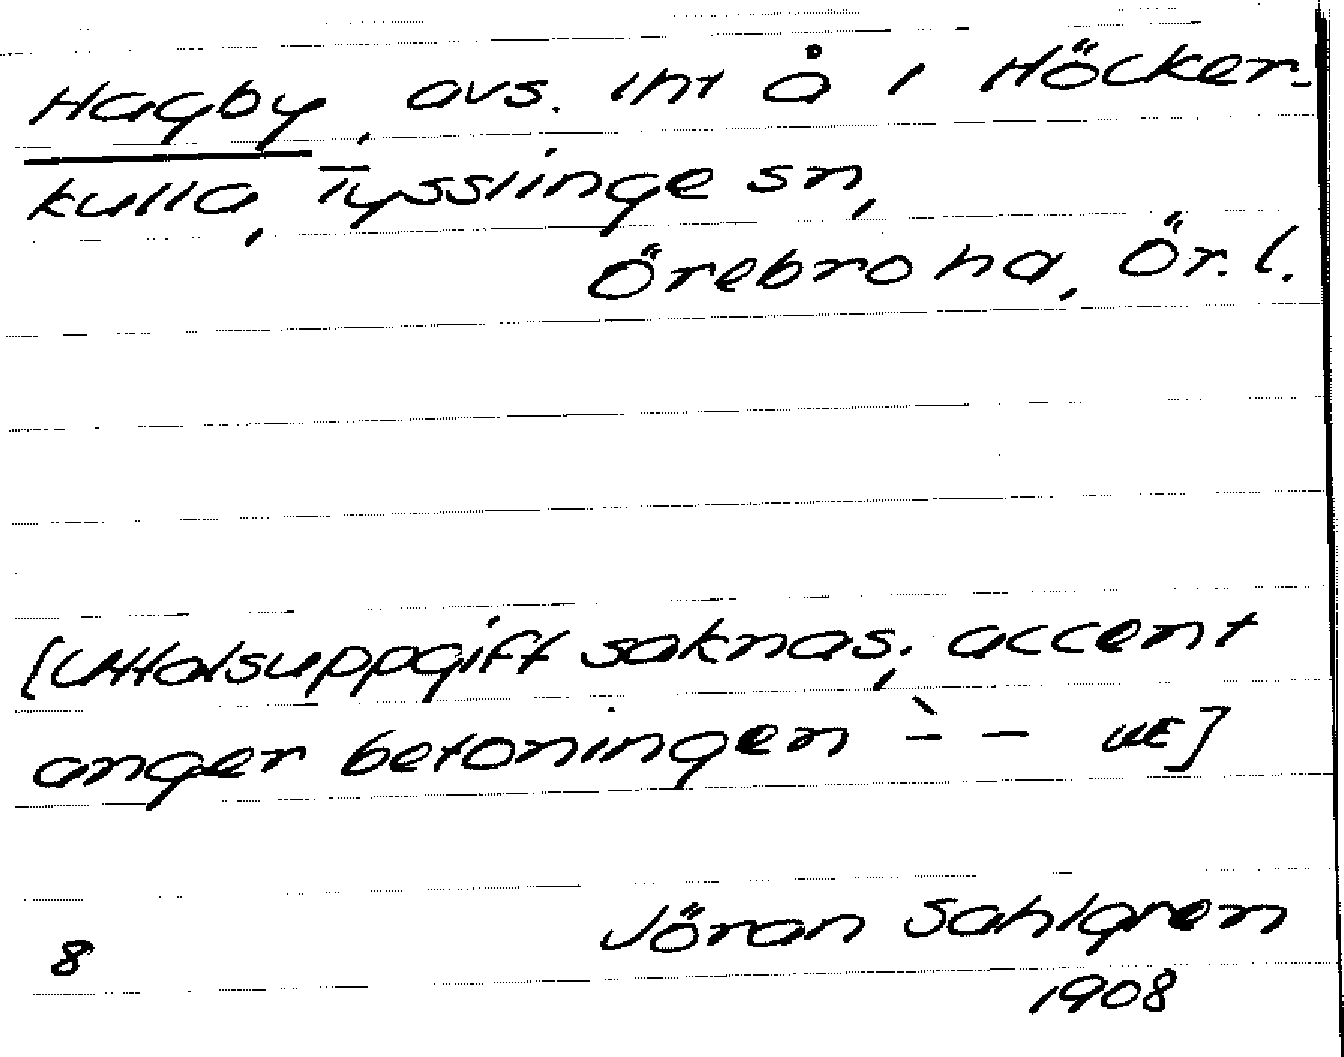 Hagby, avs. lht å i Höcker-
kulla, Tysslinge sn,
Örebro hd, Ör. l.
[Uttalsuppgift saknas; accent
anger betoningen ̀– – UE]
Jöran Sahlgren
8
1908